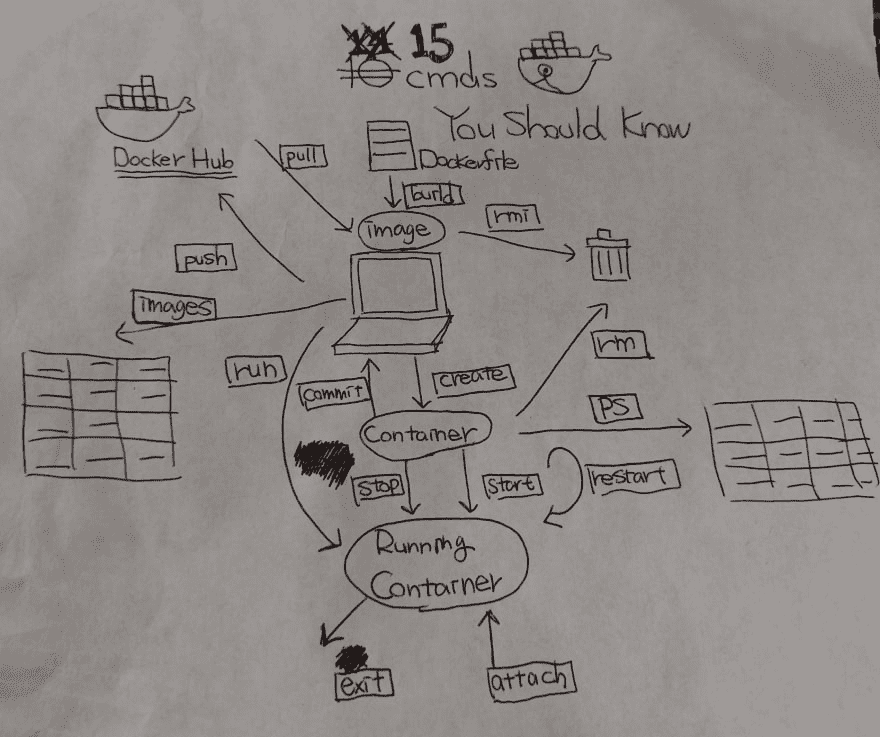 15
10 cmds
You Should Know
Docker Hub
pull
Dockerfile
build
image
rmi
push
images
rm
run
commit
create
PS
Container
stop
start
restart
Running
Container
exit
attach